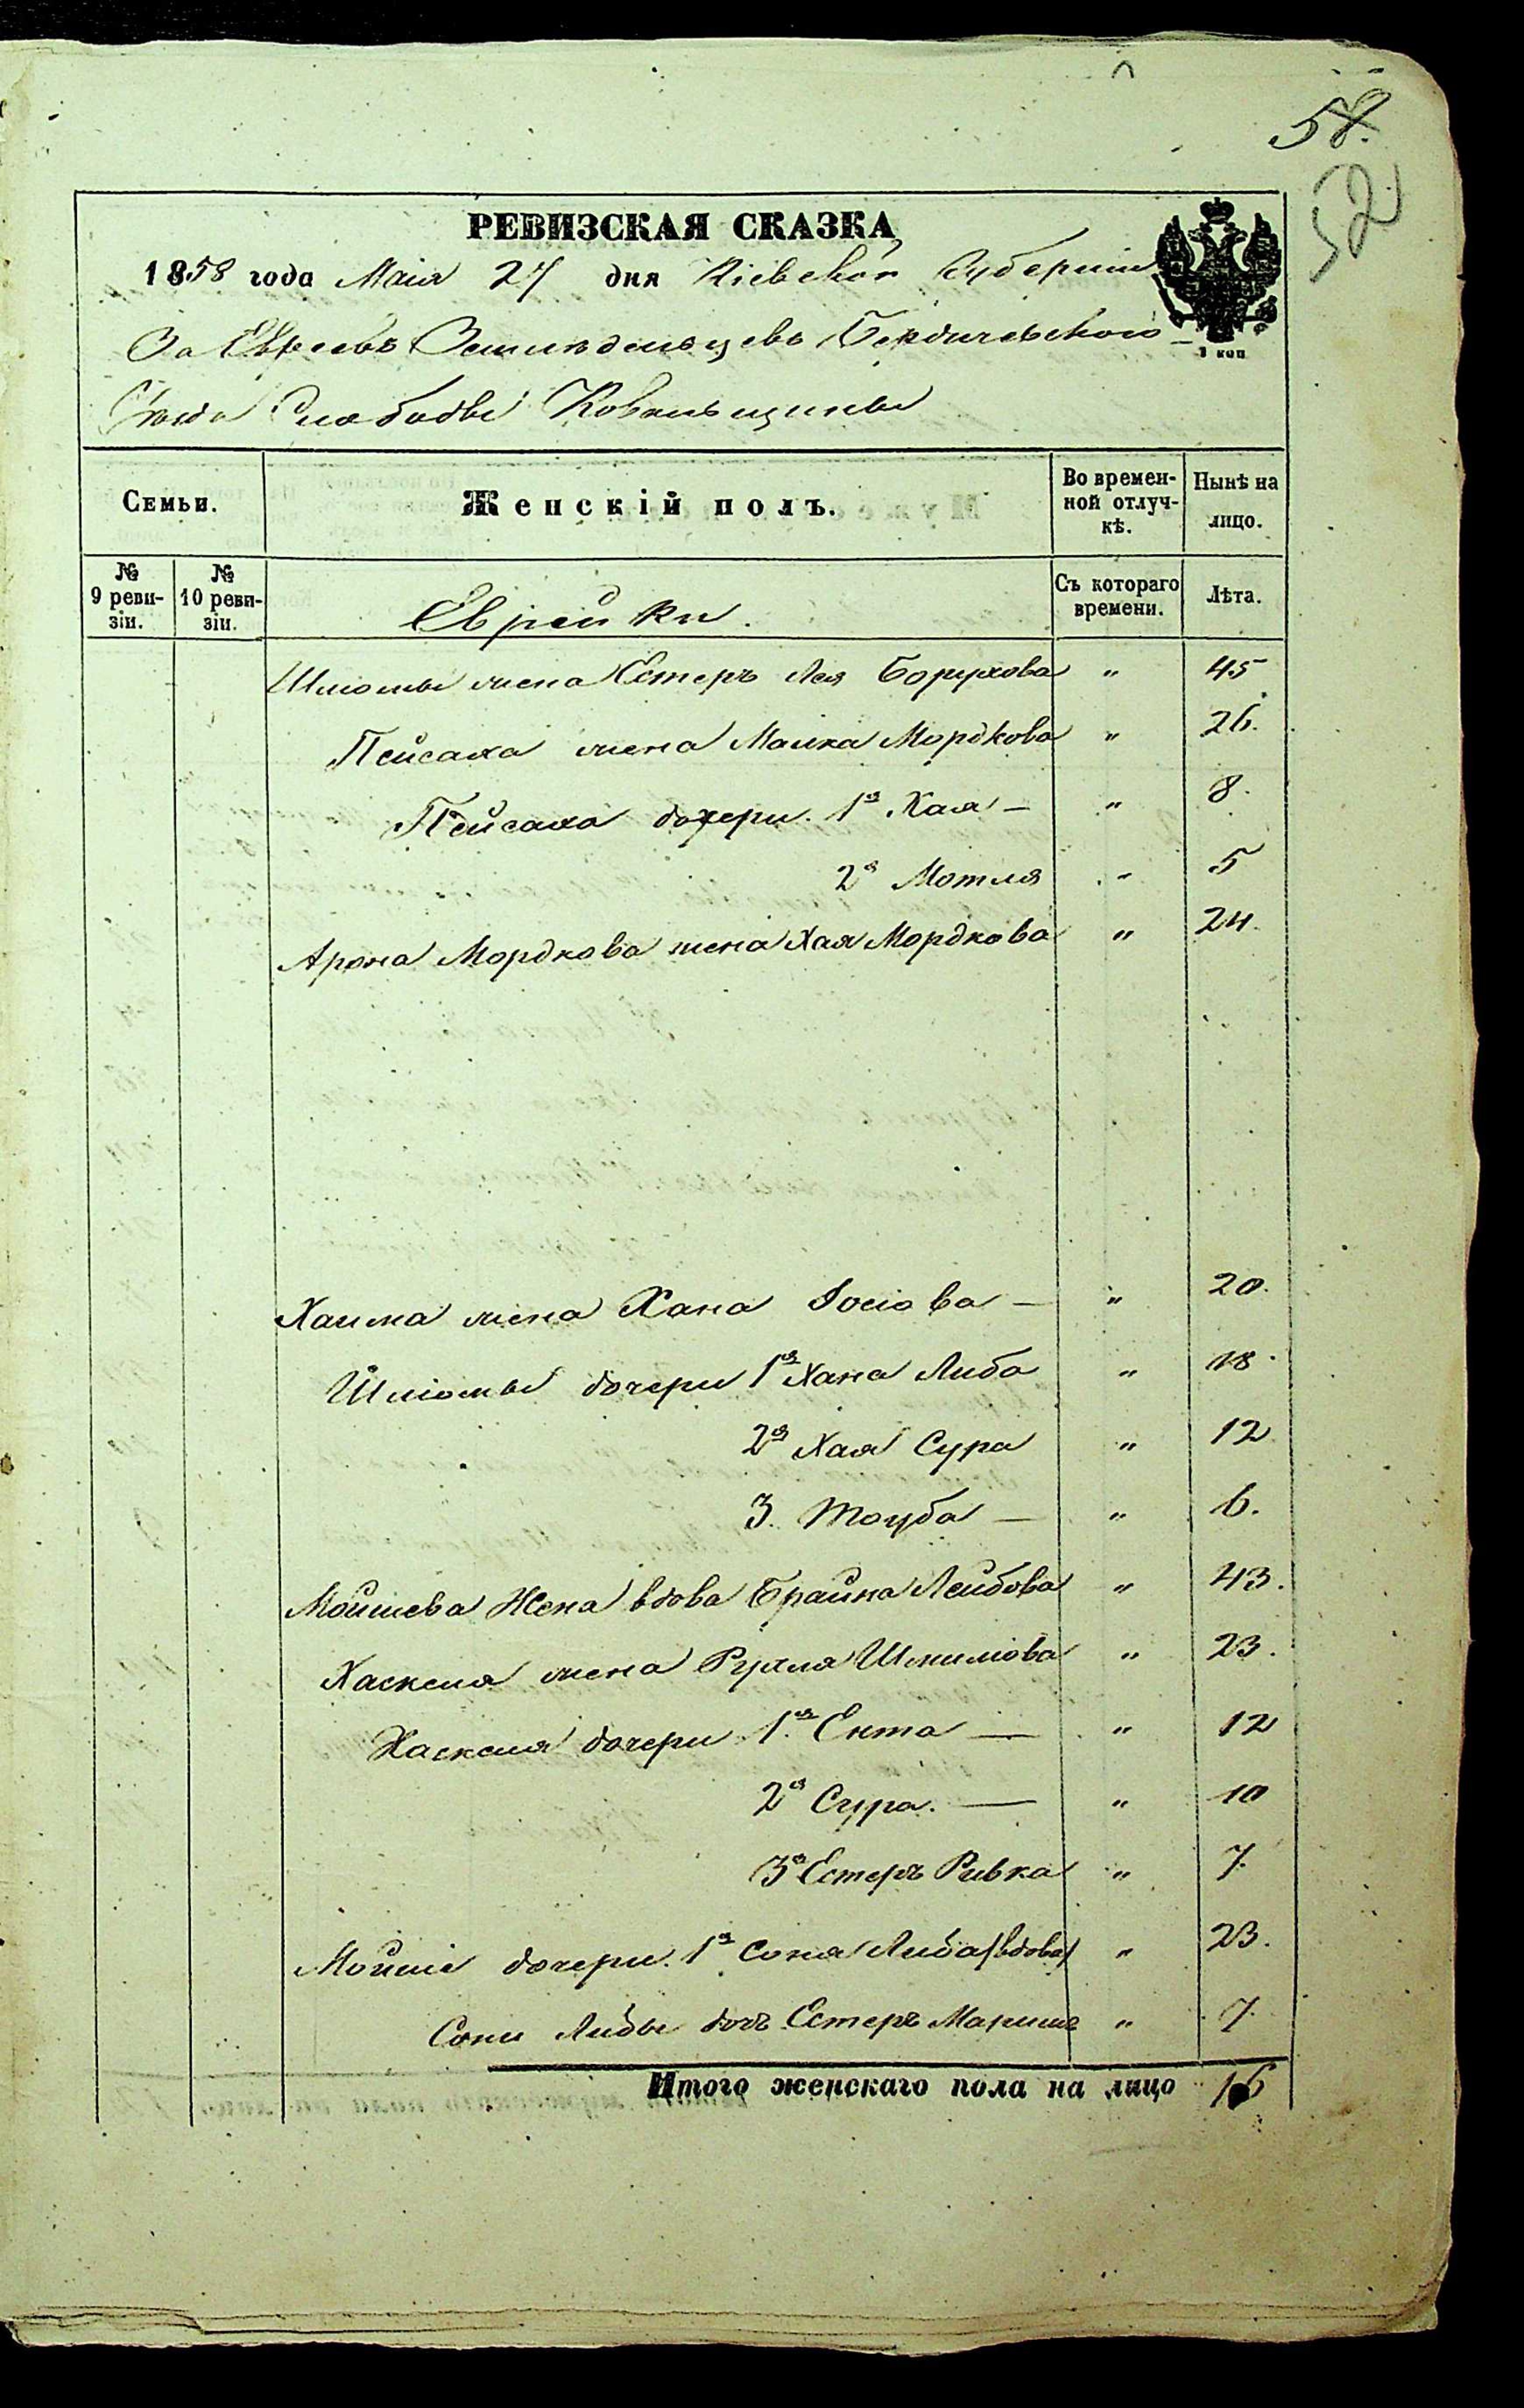 58.
52
РЕВИЗСКАЯ СКАЗКА
1858 года Маія 27 дня Кіевской Губерніи
За Евреевъ Земледельцевъ Бердичевского
Уезда Слободы Ковальщины
1 коп
Семьи.
Женскій полъ.
Во времен-
ной отлуч-
кѣ.
Нынѣ на
лицо.
№
9 реви-
зіи.
№
10 реви-
зіи.
Еврейки.
Съ котораго
времени.
Лѣта.
Шліомы жена Естеръ Лея Борухова " 45
Пейсаха жена Малка Мордкова " 26.
Пейсаха дочери. 1я Хая — " 8.
2я Мотля " 5
Арона Мордкова жена Хая Мордкова " 24.
Хаима жена Хана Іосіова — " 20.
Шліомы дочери 1я Хана Либа " 18.
2я Хая Сура " 12
3. Тоуба — " 6.
Мойшева Жена вдова Брайна Лейбова " 43.
Хаскеля жена Рухля Шмиліова " 23.
Хаскеля дочери 1я Ента — " 12
2я Сура. — " 10
3я Естеръ Ривка " 7.
Мойше дочери. 1я Соня Либа (вдова) " 23.
Сони Либы дочь Естеръ " 7.
Итого женскаго пола на лицо 16